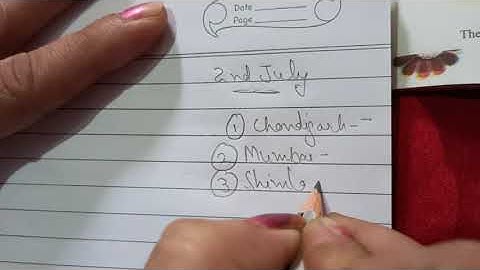 Date
Page
The
2nd July
① Chandigarh -
② Mumbai -
③ Shimla